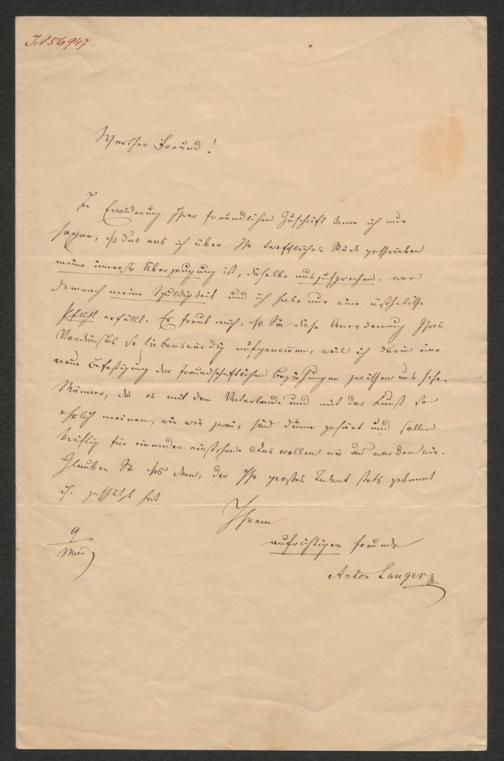 J.N 56947
Werther Freund!
In Erwiderung Ihrer freundlichen Zuschrift kann ich nur
sagen, daß das was ich über Ihr treffliches Stück geschrieben
meine innerste Überzeugung ist, dieselbe auszusprechen, war
demnach meine Schuldigkeit und ich habe nur eine
Pflicht erfüllt. Es freut mich, daß Sie diese Anerkennung Ihres
Verdienstes so liebenswürdig aufgenommen, weil ich darin eine
neue Befestigung der freundschaftlichen Beziehungen zwischen uns sehe.
Männer, die es mit dem Vaterlande und mit der Kunst so
ehrlich meinen, wie wir zwei, sind dünn gesäet und sollen
für einander einstehen. Das wollen wir und werden wir.
Glauben Sie das dem, der Ihr großes Talent stets gekannt
u. geschätzt hat
Ihrem
aufrichtigen Freunde
Anton Langer
9